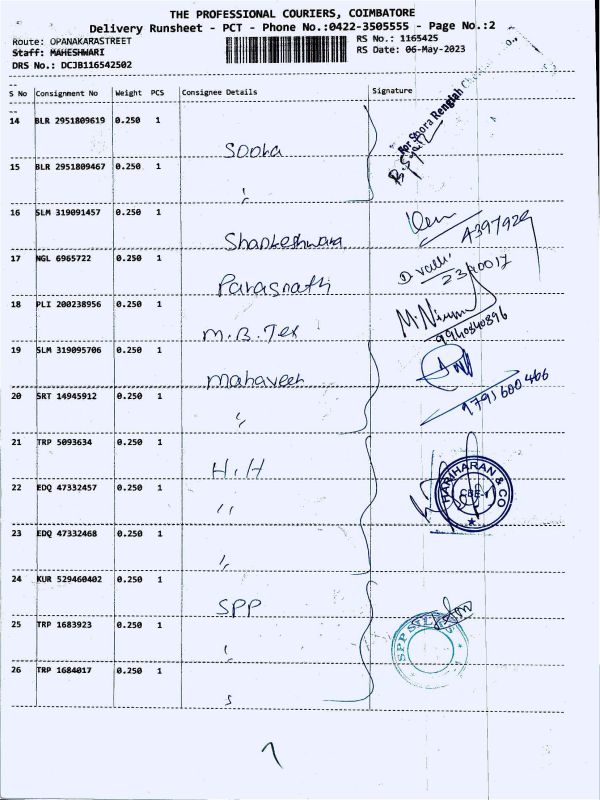 THE PROFESSIONAL COURIERS, COIMBATORE
Delivery Runsheet - PCT - Phone No.:0422-3505555 - Page No.:2
Route: OPANAKARASTREET RS No.: 1165425
Staff: MAHESHWARI RS Date: 06-May-2023
DRS No.: DCJB116542502
S No Consignment No Weight PCS Consignee Details Signature
For Soora Rengiah
14 BLR 2951809619 0.250 1
Sooha
15 BLR 2951809467 0.250 1
"
16 SLM 319091457 0.250 1
Shankeshwara A397929
17 NGL 6965722 0.250 1
Parasnath D. Valli
18 PLI 200238956 0.250 1
M.B.Tex M.Nirum 9940840896
19 SLM 319095706 0.250 1
Mahaveer
20 SRT 14945912 0.250 1
"
21 TRP 5093634 0.250 1
H.H
22 EDQ 47332457 0.250 1
" HARIHARAN & CO CBE-1
23 EDQ 47332468 0.250 1
"
24 KUR 529460402 0.250 1
SPP
25 TRP 1683923 0.250 1
" SPP
26 TRP 1684017 0.250 1
"